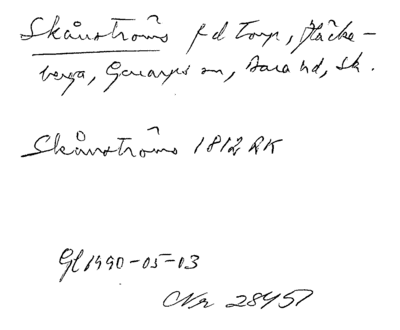 Skånströms f d torp, Häcke-
berga, Genarps sn, Bara hd, Sk.
Skånströms 1812 RK
Gl 1990-05-03
Nr 28457